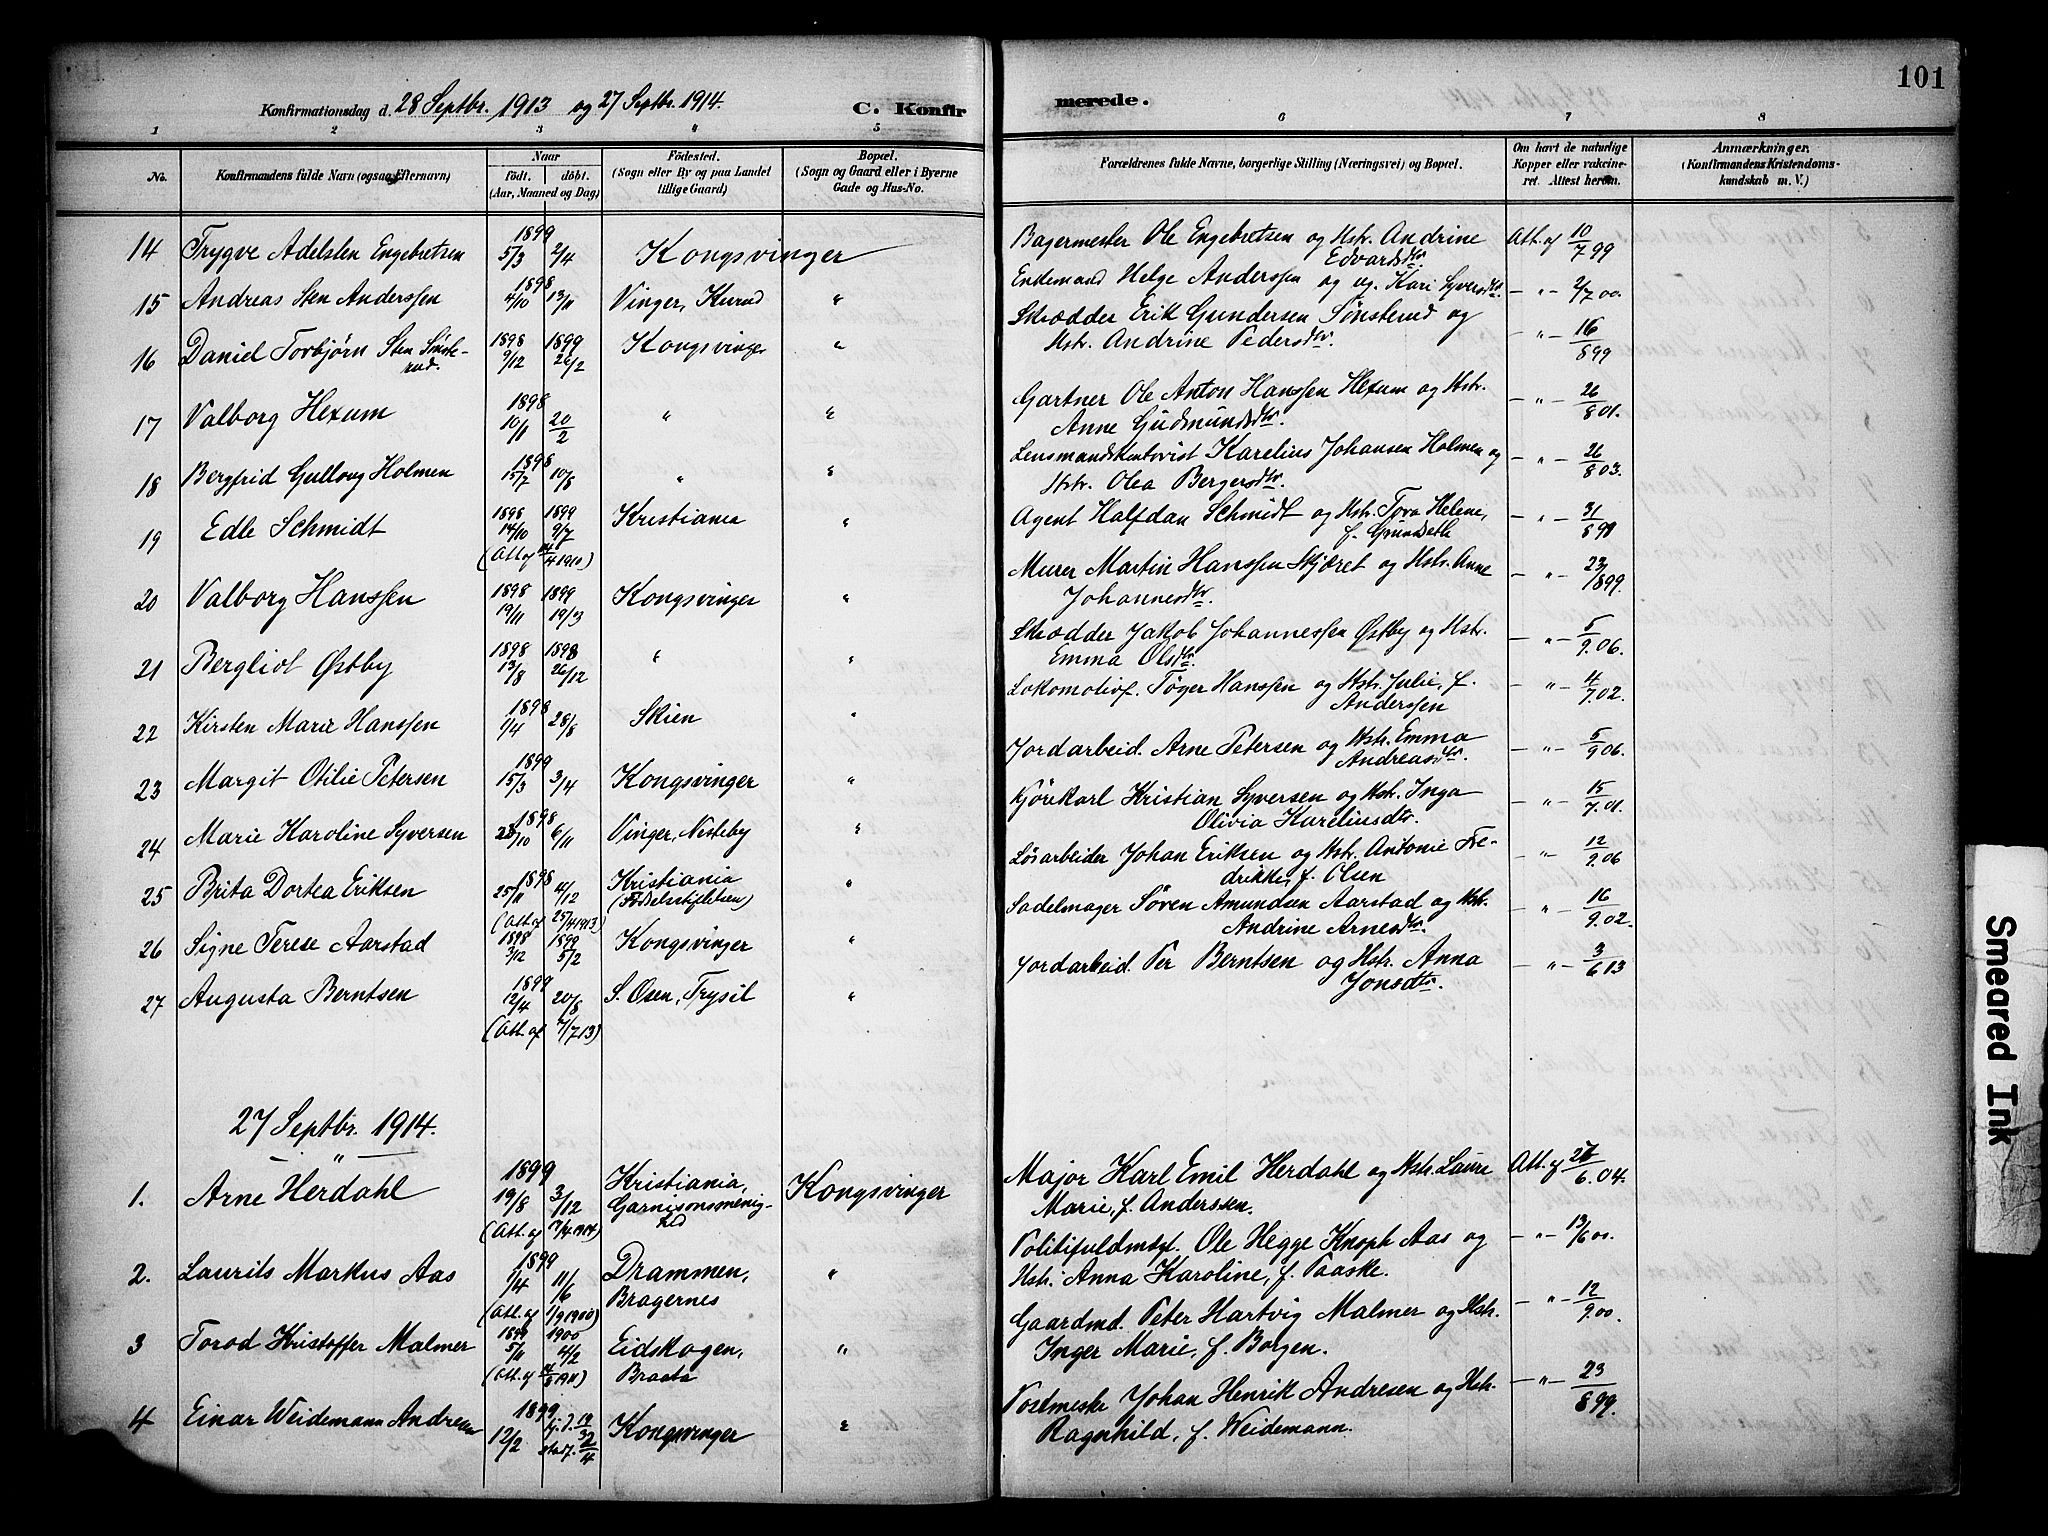 101
Konfirmationsdag d. 28 Septbr. 1913 og 27 Septbr. 1914. C. Konfirmerede.
1 2 3 4 5 6 7 8
No. Konfirmandens fulde Navn (ogsaa Efternavn) Naar født. døbt. (Aar, Maaned og Dag) Fødested. (Sogn eller By og paa Landet tillige Gaard) Bopæl. (Sogn og Gaard eller i Byerne Gade og Hus-No. Forældrenes fulde Navne, borgerlige Stilling (Næringsvei) og Bopæl. Om havt de naturlige Kopper eller vakcineret. Attest herom. Anmærkninger. (Konfirmandens Kristendomskundskab m. V.)
14 Trygve Adelsten Engebretsen 1899 5/3 2/4 Kongsvinger Bagermester Ole Engebretsen og Hstr. Andrine Edvardsdtr. Att. af 10/7 99
15 Andreas Sten Anderssen 1898 4/10 13/11 Vinger, Kurud " Enkemand Helge Anderssen og ug. Kari Syversdtr. - " - 2/7 00.
16 Daniel Torbjørn Sten Sønsterud. 1898 9/12 1899 26/2 Kongsvinger " Skrædder Erik Gundersen Sønsterud og Hstr. Andrine Pedersdtr. - " - 16/8 99
17 Valborg Hexum 1898 10/1 20/2 " " Gartner Ole Anton Hanssen Hexum og Hstr. Anne Gudmundsdtr. - " - 26/8 01.
18 Bergfrid Gullaug Holmen 1898 15/7 10/8 " " Lensmandskontorist Karelius Johansen Holmen og Hstr. Olea Bergersdtr. - " - 26/8 03.
19 Edle Schmidt 1898 14/10 1899 9/7 Kristiania " Agent Halfdan Schmidt og Hstr. Tora Helene, f. Grundseth - " - 31/8 99
(Att. af 14/4 1910)
20 Valborg Hanssen 1898 19/11 1899 19/3 Kongsvinger " Murer Martin Hanssen Skjæret og Hstr. Anne Johannesdtr. - " - 23/1899.
21 Bergliot Østby 1898 13/8 1898 26/12 " " Skrædder Jakob Johannessen Østby og Hstr. Emma Olsdtr. - " - 5/9.06.
22 Kirsten Marie Hanssen 1898 1/4 28/8 Skien " Lokomotivf. Tøger Hanssen og Hstr. Julie, f. Anderssen - " - 4/7.02.
23 Margit Otilie Petersen 1899 15/3 3/4 Kongsvinger " Jordarbeid. Arne Petersen og Hstr. Emma Andreasdtr. - " - 5/9 06.
24 Marie Karoline Syversen 1898 28/10 6/11 Vinger, Nisteby " Kjørekarl Kristian Syversen og Hstr. Inga Olivia Kureliusdtr. - " - 15/7.01.
25 Brita Dortea Eriksen 1898 25/11 4/12 Kristiania (Fødselsstiftelsen) " Løsarbeider Johan Eriksen og Hstr. Antonie Fredrikke, f. Olsen - " - 12/9.06
(Att. af 25/4 1913)
26 Signe Terese Aarstad 1898 3/12 1899 5/2 Kongsvinger " Sadelmager Søren Amundsen Aarstad og Hstr. Andrine Arnesdtr. - " - 16/9.02.
27 Augusta Berntsen 1899 12/4 20/8 S. Osen, Trysil " Jordarbeid. Per Berntsen og Hstr. Anna Jonsdtr. - " - 3/6 13
(Att. af 7/7 13)
27 Septbr. 1914.
1. Arne Herdahl 1899 19/8 3/12 Kristiania, Garnisonsmenighed Kongsvinger Major Karl Emil Herdahl og Hstr. Laura Marie, f. Anderssen. Att. af 26/6.04.
(Att. af 7/4 1914)
2. Laurits Markus Aas 1899 1/4 11/6 Drammen, Bragernes " Politifuldmægt. Ole Hegge Knoph Aas og Hstr. Anna Karoline, f. Paaske. - " - 13/6 00.
(Att. af 1/9 1900)
3 Torod Kristoffer Malmer 1899 5/11 1900 4/2 Eidskogen, Braata " Gaardmd. Peter Hartvig Malmer og Hstr. Inger Marie, f. Borgen. - " - 12/9.00.
4 Einar Weidemann Andresen 1899 12/2 hj. d. 19/3 stad f. 2/4 Kongsvinger " Postmester Johan Henrik Andresen og Hstr. Ragnhild, f. Weidemann. - " - 23/8 99.
Smeared Ink